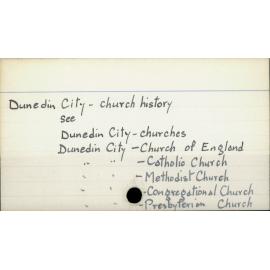 Dunedin City - church history
see
Dunedin City - churches
Dunedin City - Church of England
" " - Catholic Church
" " - Methodist Church
" " - Congregational Church
" " - Presbyterian Church